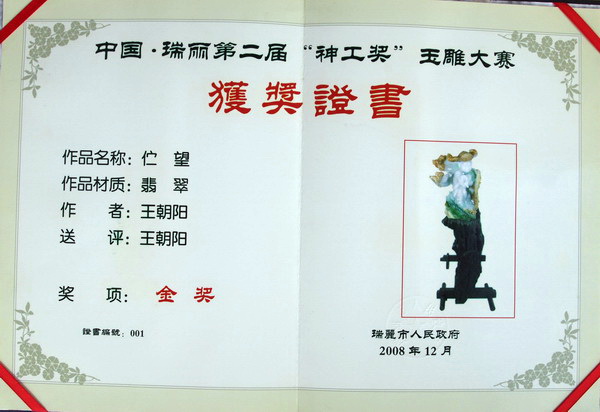 中国·瑞丽第二届“神工奖”玉雕大赛
獲獎證書
作品名称：伫 望
作品材质：翡 翠
作 者：王朝阳
送 评：王朝阳
奖 项：金 奖
證書編號：001
瑞麗市人民政府
2008 年 12 月